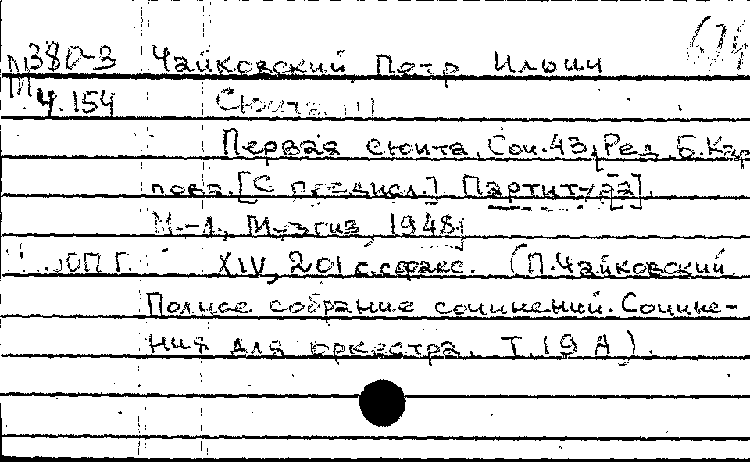 674
М380-3 Чайковский Петр Ильич
Ч.154 Сюита III
Первая сюита, Соч.43, Ред. Б.Кар
пова. [С предисл.] [Партитура].
М.-Л., Музгиз, 1948,
ЮПГ. XIV, 201 с.с факс. (П.Чайковский
Полное собрание сочинений. Сочине-
ния для оркестра. Т.19 А).